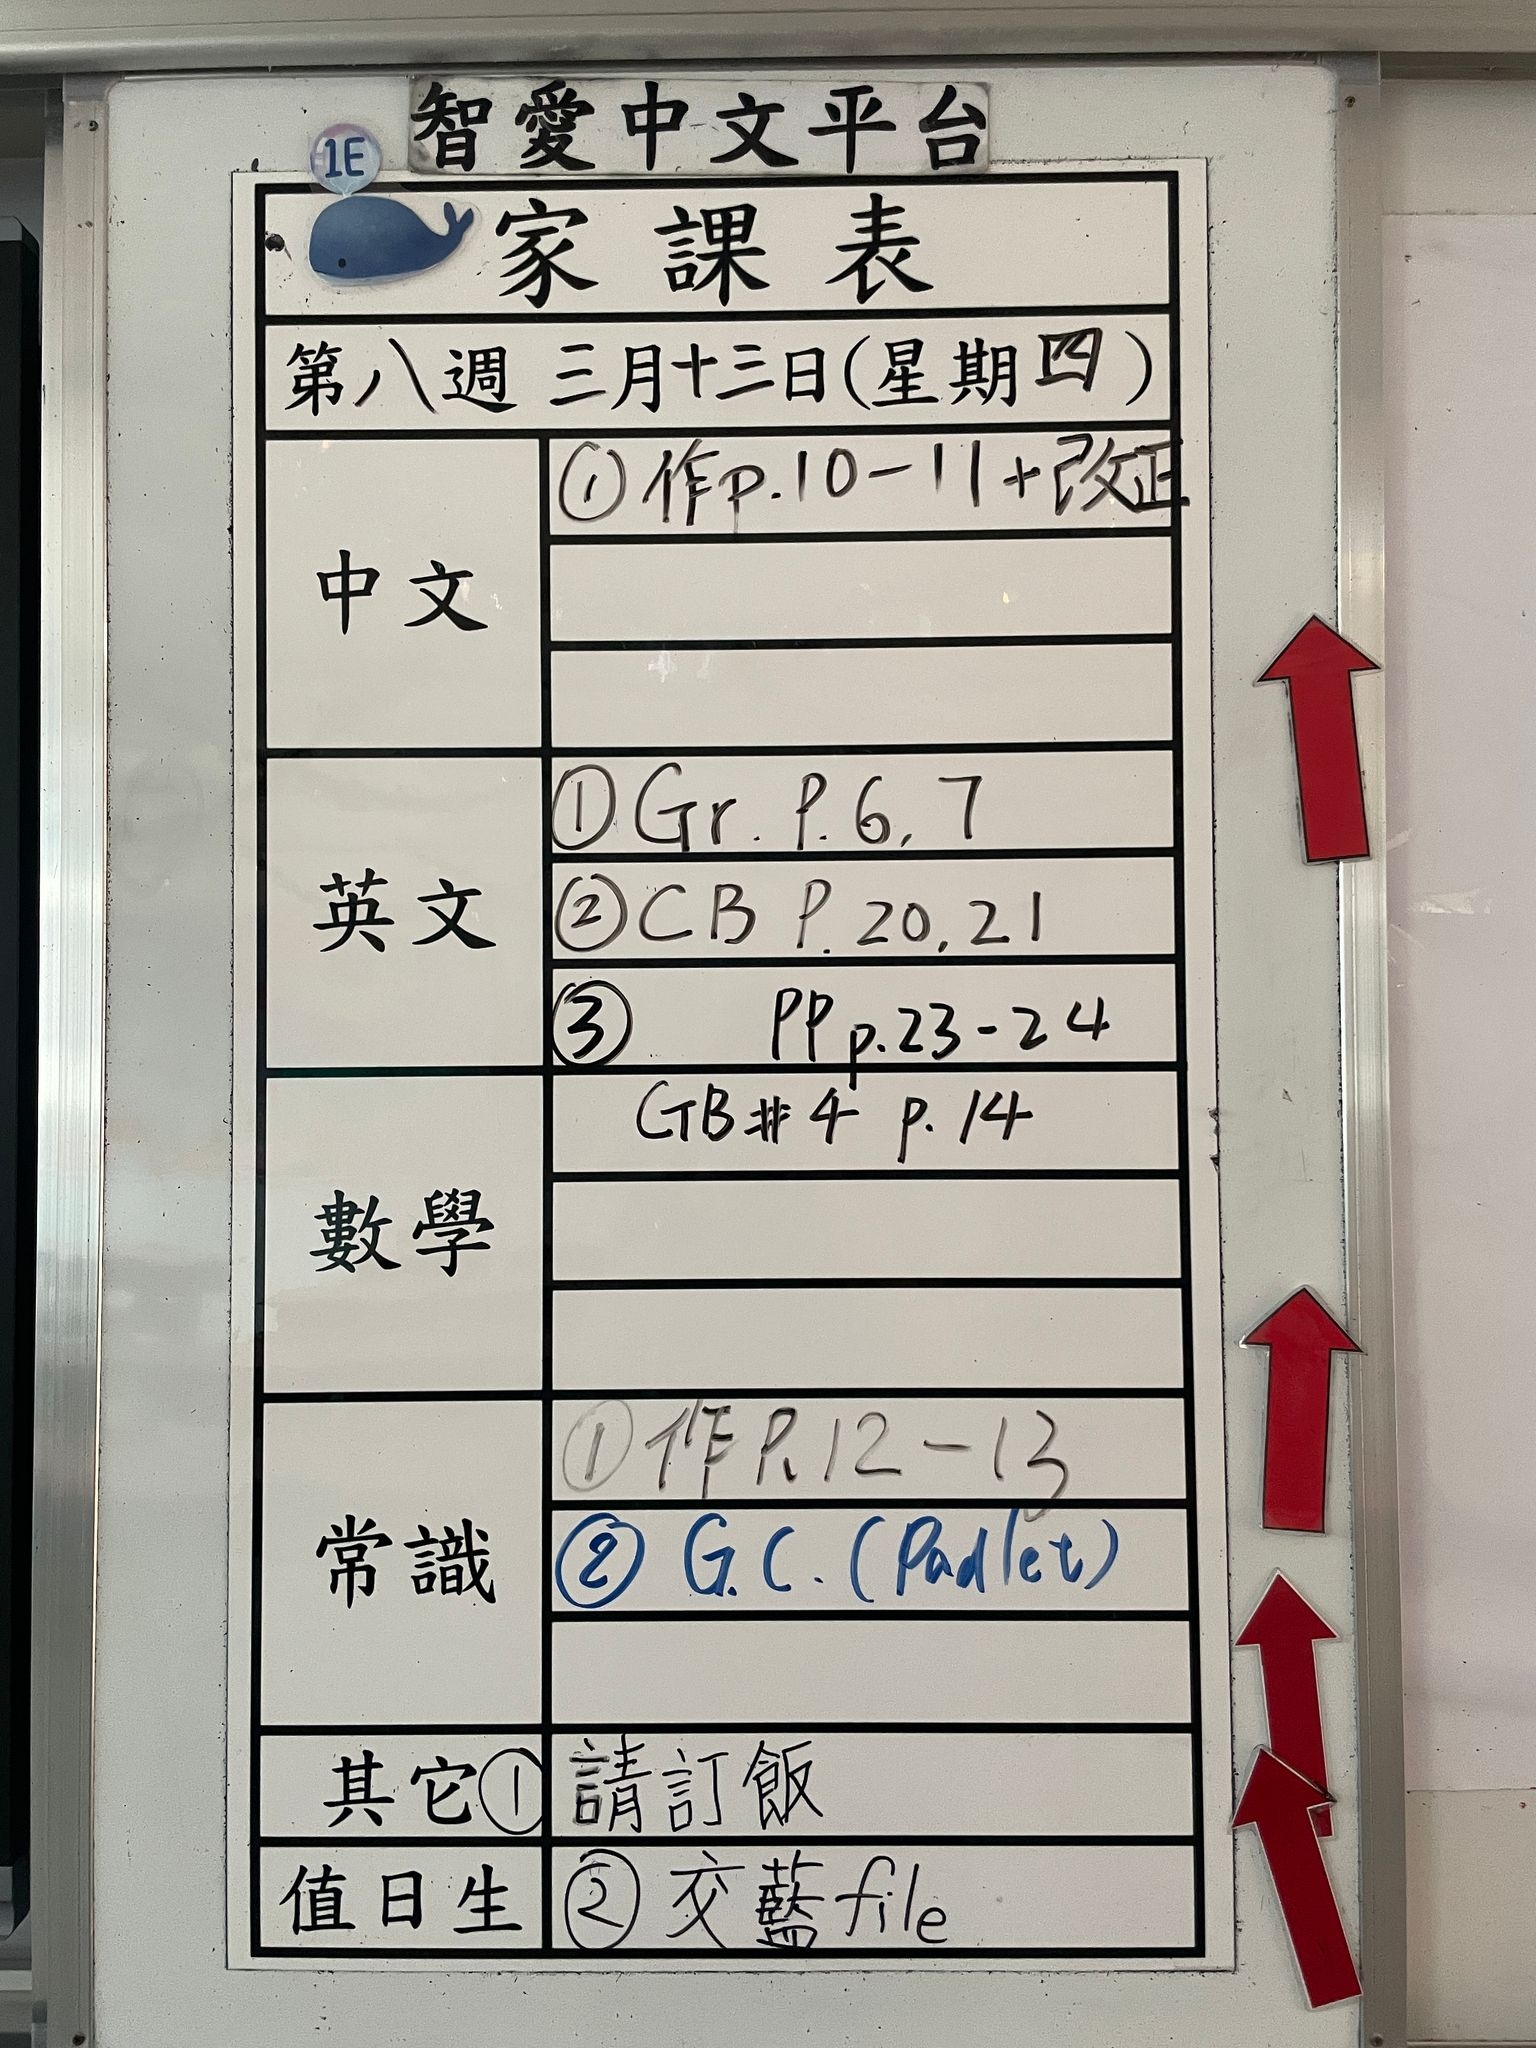 智愛中文平台
1E
家課表
第八週 三月十三日(星期四)
中文
① 作p.10-11+改正
英文
① Gr. P.6,7
② CB P.20,21
③ PP p.23-24
數學
GB#4 p.14
常識
① 作P.12-13
② G.C. (Padlet)
其它 ① 請訂飯
值日生 ② 交藍file